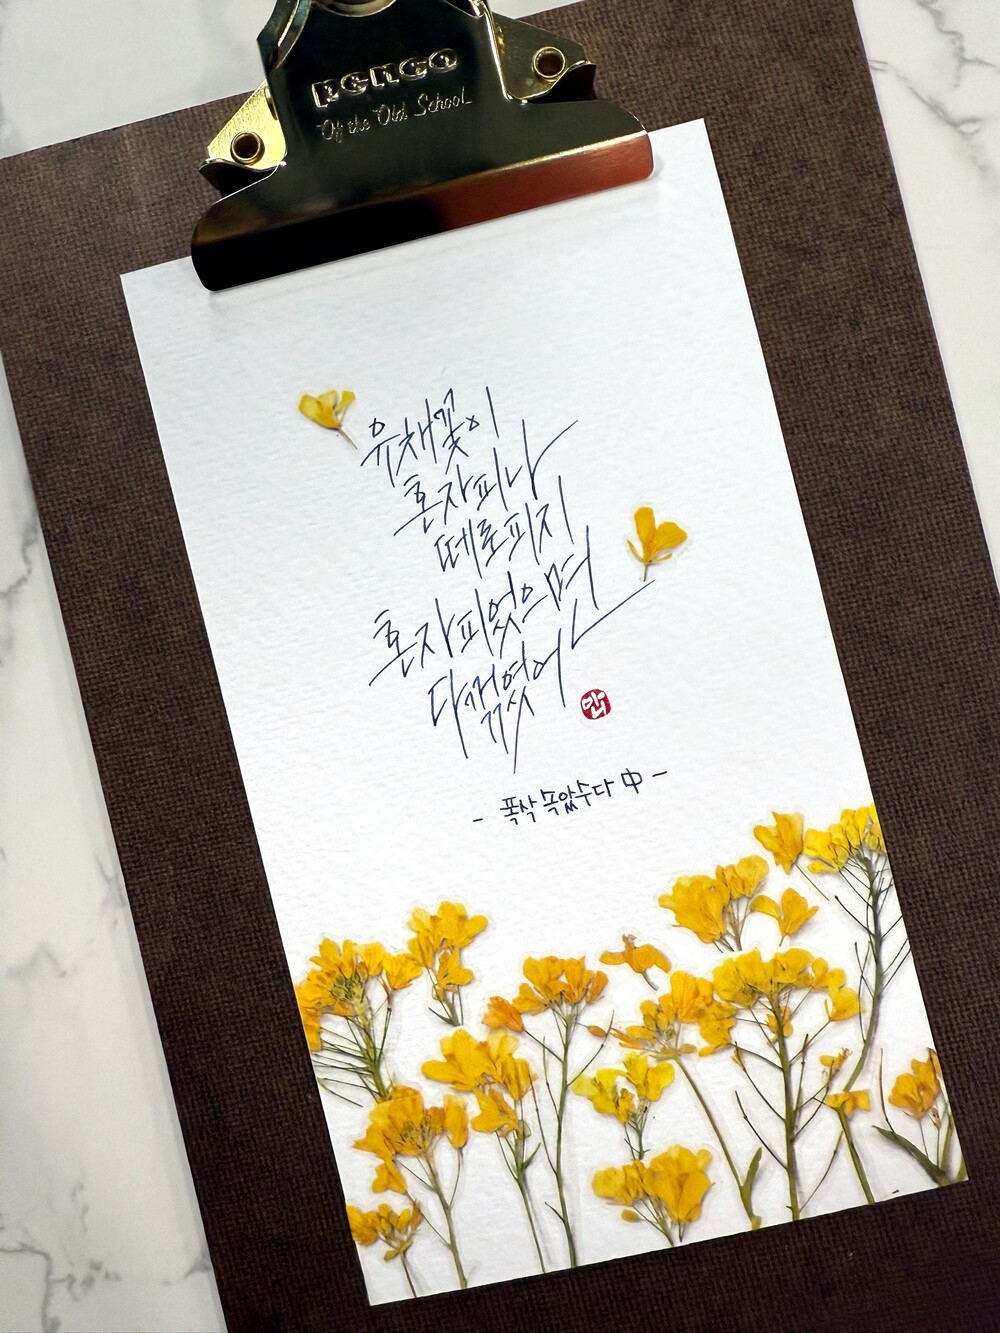 penco
Of the Old School
유채꽃이
혼자피나
떼로피지
혼자피었으면
다꺾였어
- 폭싹 속았수다 中 -